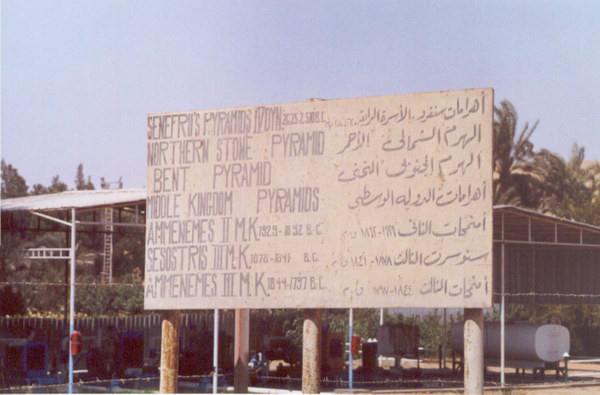 SENEFRU'S PYRAMIDS IV DYN. B.C. أهرامات سنفرو. الأسرة الرابعة
NORTHERN STONE PYRAMID الهرم الشمالى "الأحمر"
BENT PYRAMID الهرم الجنوبى "المنحنى"
MIDDLE KINGDOM PYRAMIDS أهرامات الدولة الوسطى
AMMENEMES II M.K. 1929-1892 B.C. أمنمحات الثانى ق.م
SESOSTRIS III M.K. 1878-1841 B.C. سنوسرت الثالث ١٨٧٨-١٨٤١ ق.م
AMMENEMES III M.K. 1844-1797 B.C. أمنمحات الثالث ١٨٤٤-١٧٩٧ ق.م